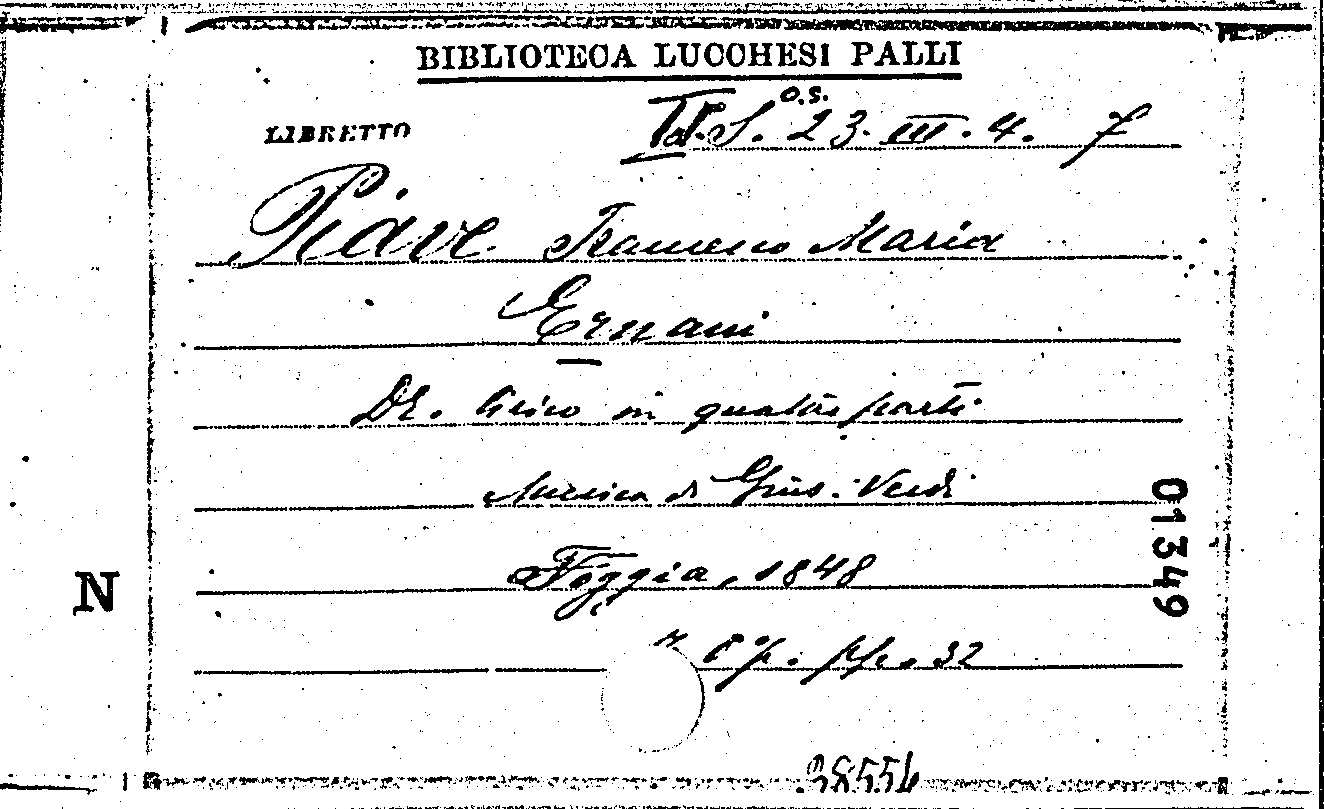 BIBLIOTECA LUCCHESI PALLI
O.S.
LIBRETTO
S. 23. III. 4. 7
Piave Francesco Maria
Ernani
Dr. lirico in quattro parti
Musica di Gius. Verdi
Foggia, 1848
01349
N
pp. 32
38554